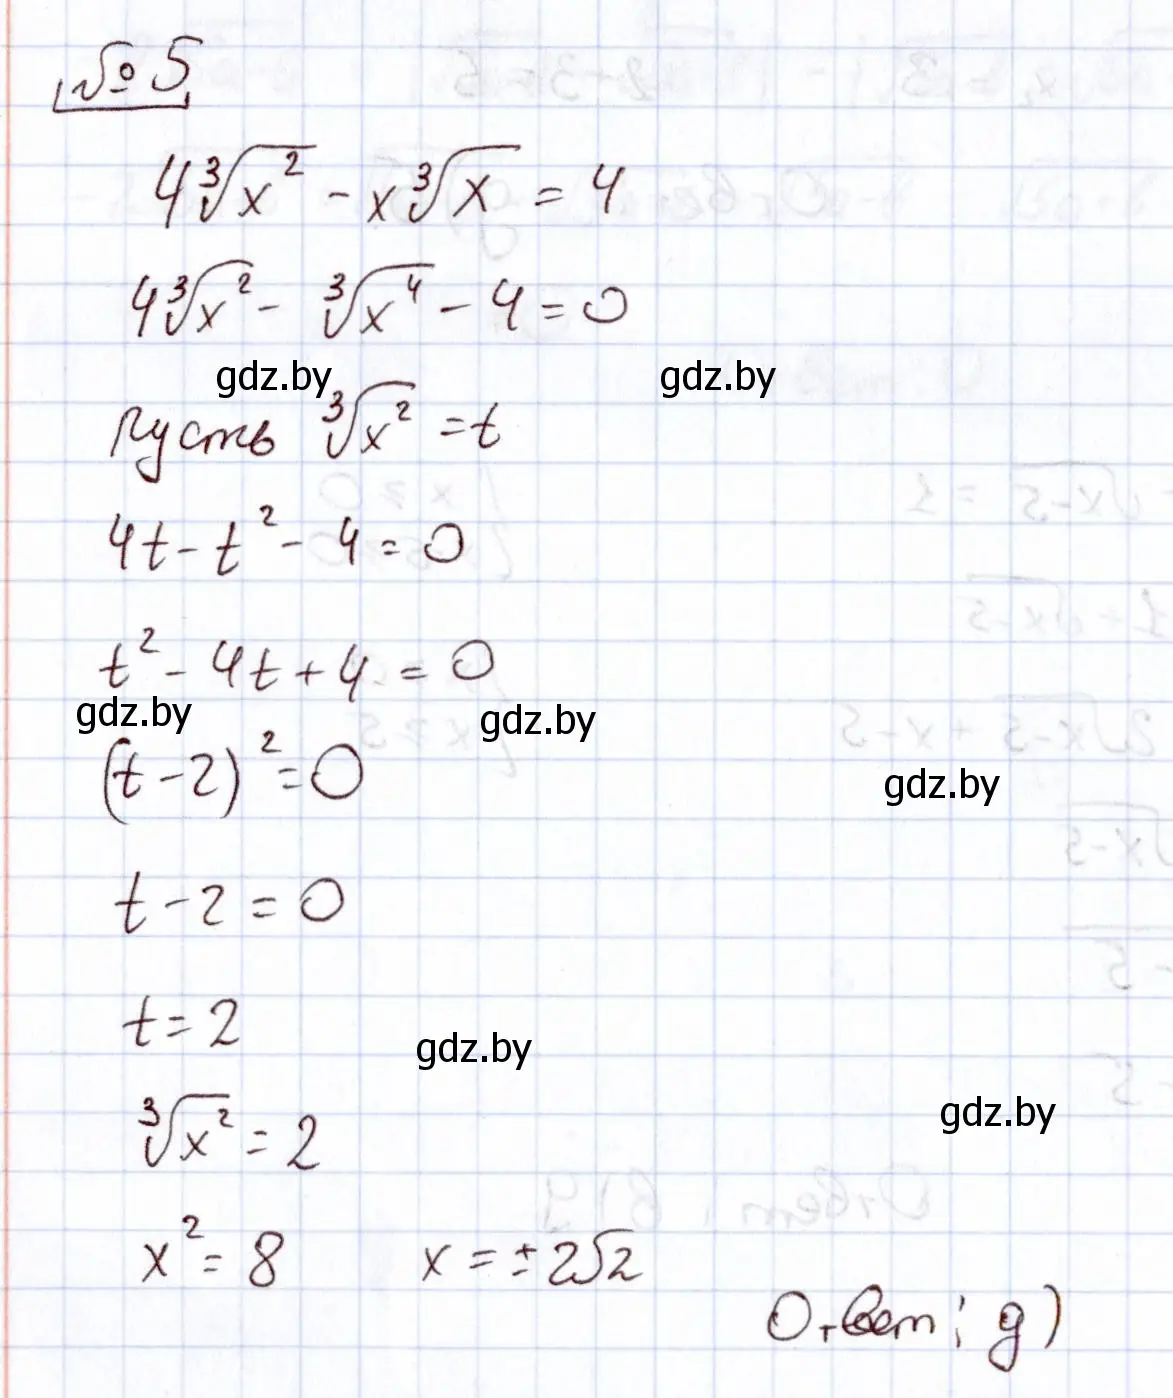 № 5
4∛x² - x∛x = 4
4∛x² - ∛x⁴ - 4 = 0
gdz.by gdz.by
Пусть ∛x² = t
4t - t² - 4 = 0
t² - 4t + 4 = 0
gdz.by gdz.by
(t - 2)² = 0
gdz.by
t - 2 = 0
t = 2
gdz.by
gdz.by
∛x² = 2
x² = 8 x = ±2√2
Ответ: д)